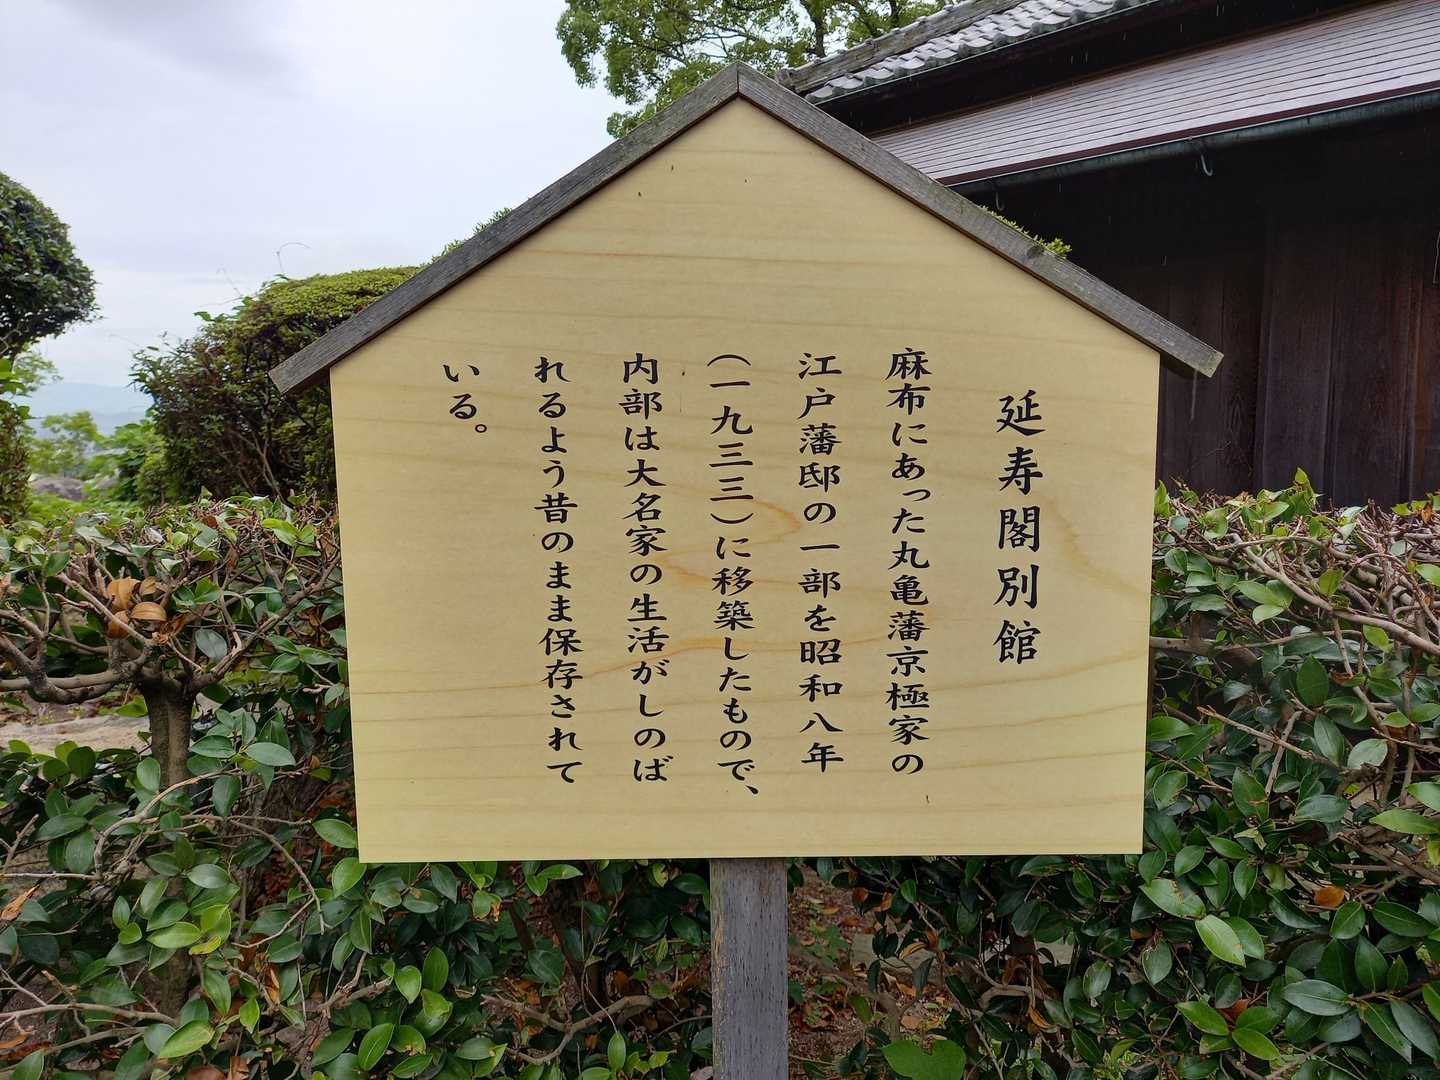 延寿閣別館
麻布にあった丸亀藩京極家の
江戸藩邸の一部を昭和八年
（一九三三）に移築したもので、
内部は大名家の生活がしのば
れるよう昔のまま保存されて
いる。